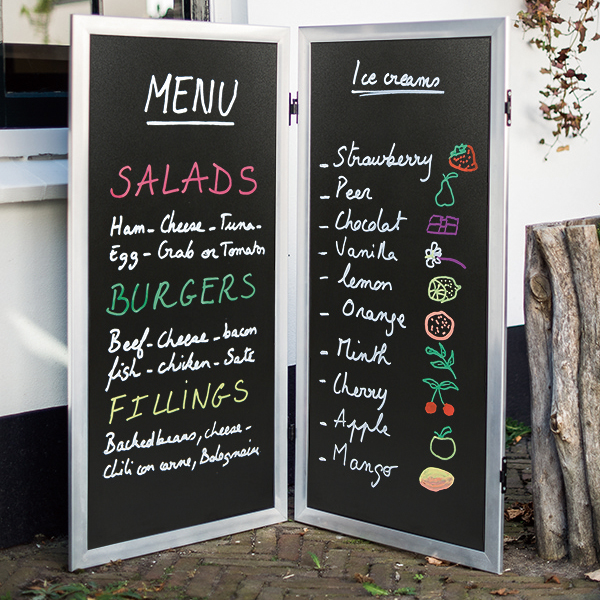 MENU
SALADS
Ham - Cheese - Tuna -
Egg - Grab or Tomato
BURGERS
Beef - Cheese - bacon
fish - chicken - Sate
FILLINGS
Backed beans, cheese -
Chili con carne, Bolognaise
Ice creams
- Strawberry
- Peer
- Chocolat
- Vanilla
- lemon
- Orange
- Minth
- Cherry
- Apple
- Mango